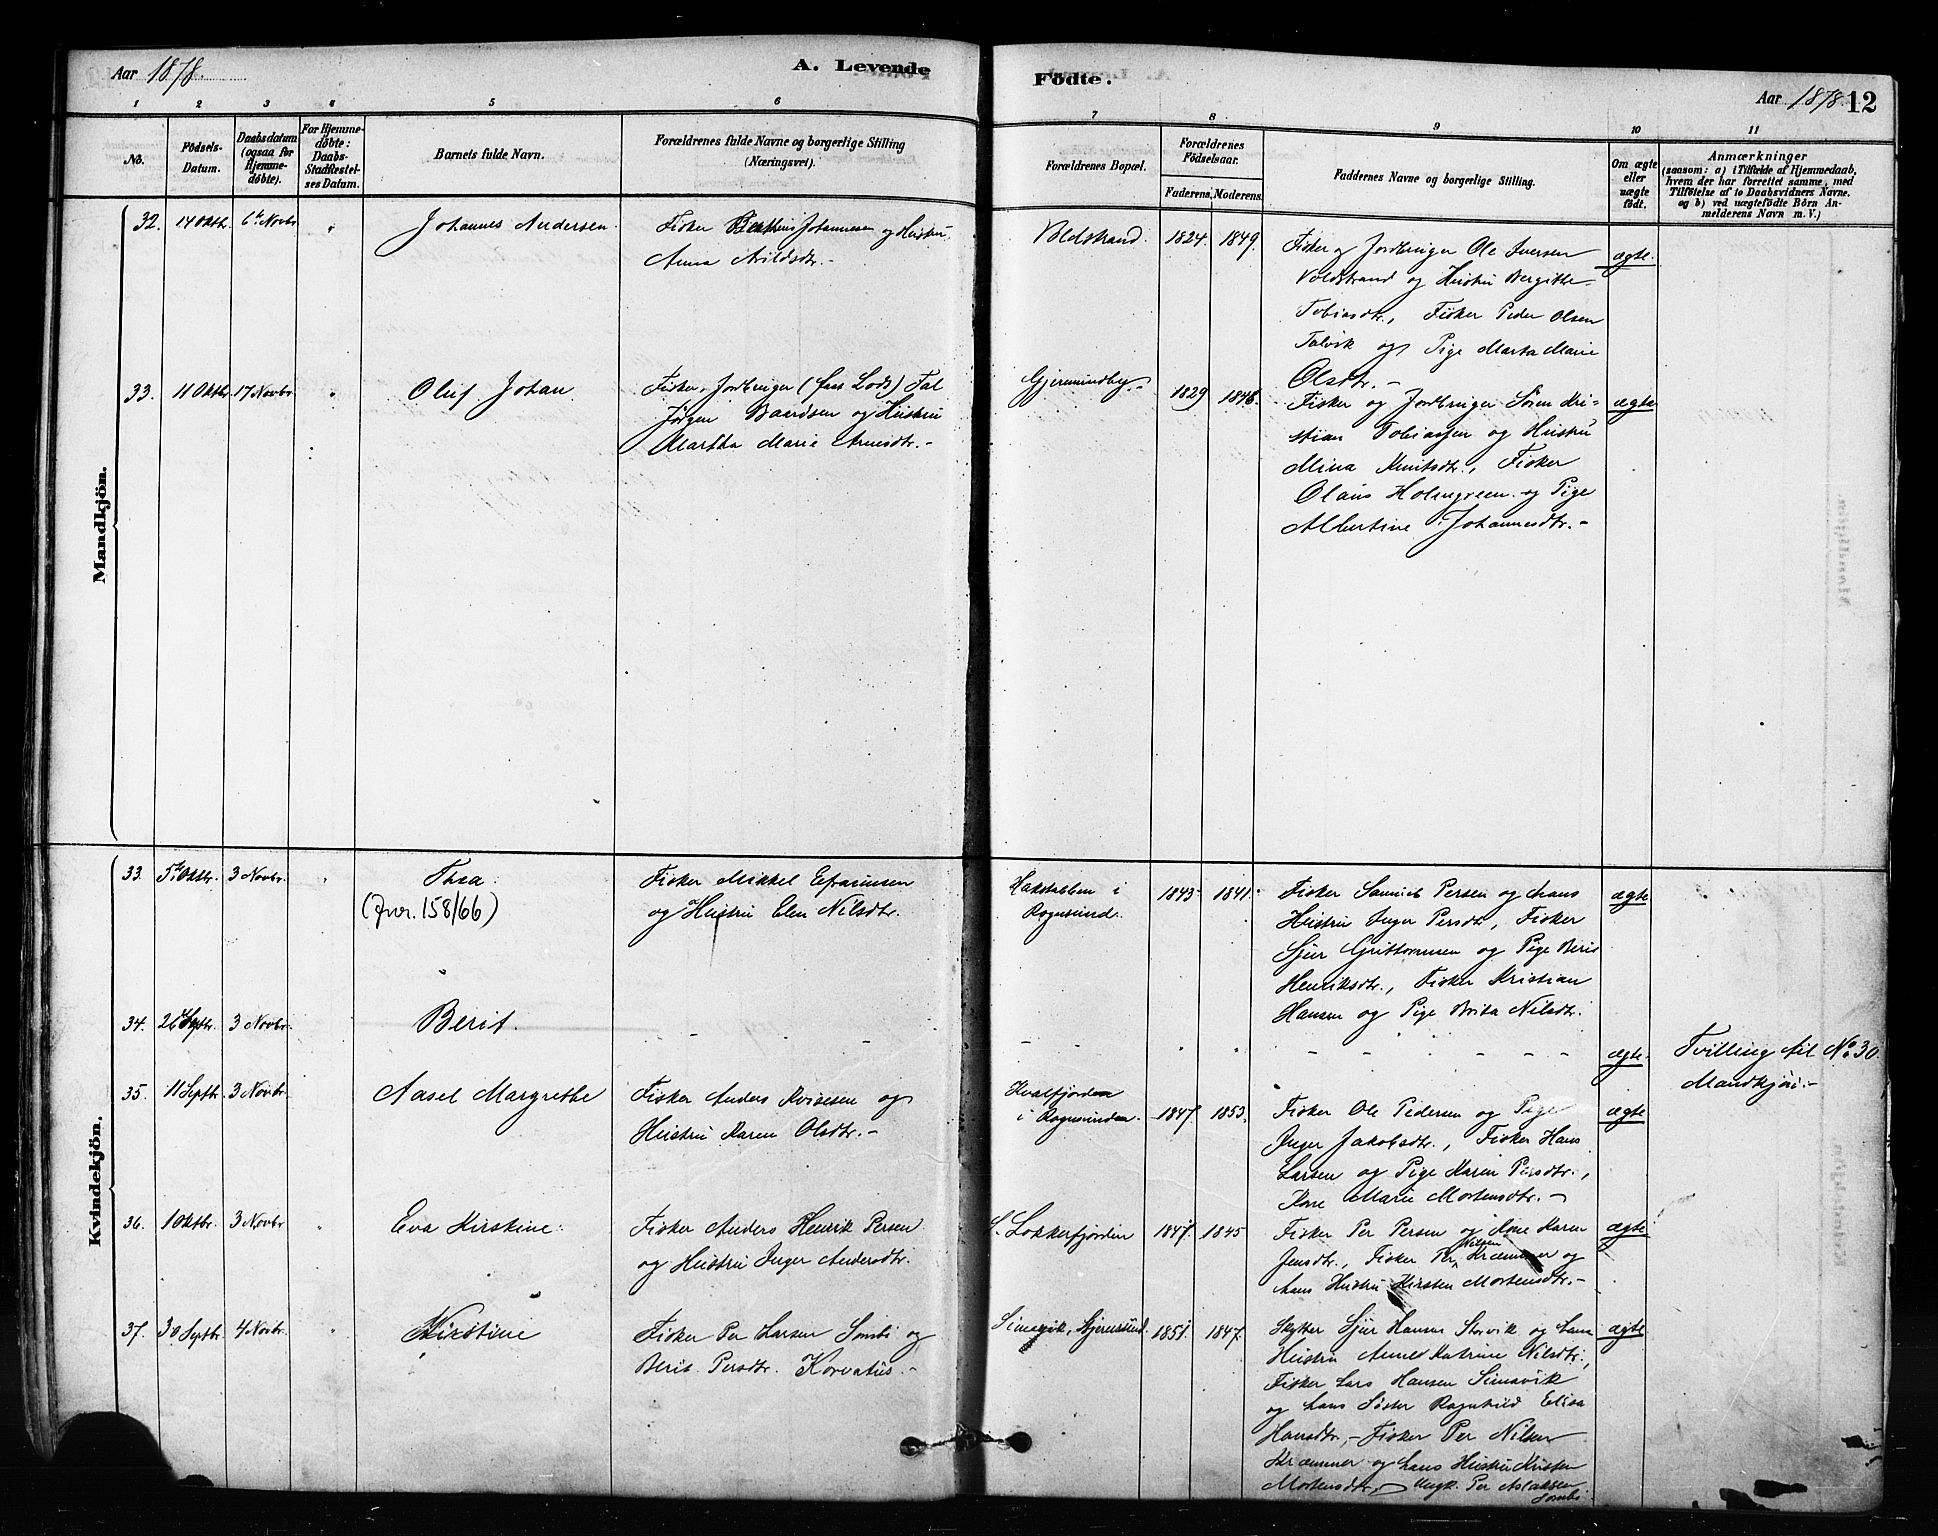 Aar 1878.
A. Levende
Födte.
Aar 1878. 12
1 2 3 4 5 6 7 8 9 10 11
No.
Födsels-
Datum.
Daabsdatum
(ogsaa for
Hjemme-
döbte).
For Hjemme-
döbte:
Daabs-
Stadfæstel-
ses Datum.
Barnets fulde Navn.
Forældrenes fulde Navne og borgerlige Stilling
(Næringsvei).
Forældrenes Bopæl.
Forældrenes
Födselsaar.
Faderens. Moderens.
Faddernes Navne og borgerlige Stilling.
Om ægte
eller
uægte
födt.
Anmærkninger
(saasom: a) i Tilfælde af Hjemmedaab,
hvem der har forrettet samme, med
Tilföielse af to Daabsvidners Navne.
og b) ved uægtefödte Börn An-
melderens Navn m. V.)
Mandkjön.
32. 14 Oktbr. 6te Novbr. "
Johannes Andersen.
Fisker Johannesen og Hustru
Anna Arildsdtr.-
Voldstrand. 1824. 1849.
Fisker og Jordbruger Ole Iversen
Voldstrand og Hustru Bergitte
Tobiasdtr., Fisker Peder Olsen
Talvik og Pige Marta Marie
Olsdtr.-
ægte.
33. 11 Oktbr. 17 Novbr. "
Oluf Johan
Fisker, Jordbruger (faas Lods) Fal
Jørgen Baardsen og Hustru
Martha Marie Arnesdtr.-
Gjermundby.- 1829 1846.
Fisker og Jordbruger Søren Kri-
stian Tobiassen og Hustru
Mina Knutsdtr., Fisker
Olaus Holmgreen og Pige
Albertine Johannesdtr.-
ægte
Kvindekjön.
33. 5te Oktbr. 3 Novbr. "
Thea.
(Jvnr. 158/66)
Fisker Mikkel Efraimsen
og Hustru Elen Nilsdtr.
Hakstabben i
Rognsund. 1843 1841.
Fisker Samuel Persen og hans
Hustru Inger Persdtr, Fisker
Sjur Guttormsen og Pige Beret
Henriksdtr., Fisker Kristian
Hansen og Pige Brita Nilsdtr.
ægte
34. 26 Septbr. 3 Novbr.
Berit.
ægte.
Tvilling til No 30
Mandkjön.-
35. 11 Septbr. 3 Novbr.
Aasel Margrethe
Fisker Anders Kvivesen og
Hustru Karen Olsdtr.-
Kvalfjorden
i Rognsundet. 1847. 1853.
Fisker Ole Pedersen og Pige
Inger Jakobsdtr., Fisker Hans
Larsen og Pige Karen Persdtr.,
Kone Marie Mortensdtr.-
ægte
36. 1 Oktbr. 3 Novbr. "
Eva Kirstine.
Fisker Anders Henrik Persen
og Hustru Inger Andersdtr.
S. Lokkerfjorden 1847. 1845
Fisker Per Persen og Kone Karen
Jensdtr., Fisker Per Nilsen Kræmmer og
hans Hustru Kirsten Mortensdtr.-
ægte
37. 30 Septbr. 4 Novbr. "
Kirstine
Fisker Per Larsen Sombi og
Berit Persdtr. Korvatus.-
Simavik, Stjernsund. 1851. 1847.
Skytter Sjur Hansen Storvik og hans
Hustru Anne Katrine Nilsdtr.,
Fisker Lars Hansen Simavik
og hans Søster Ragnhild Elisa
Hansdtr,- Fisker Per Nilsen
Kræmmer og hans Hustru Kirsten
Mortensdtr,- Ungk. Per Aslaksen
Sombi
ægte